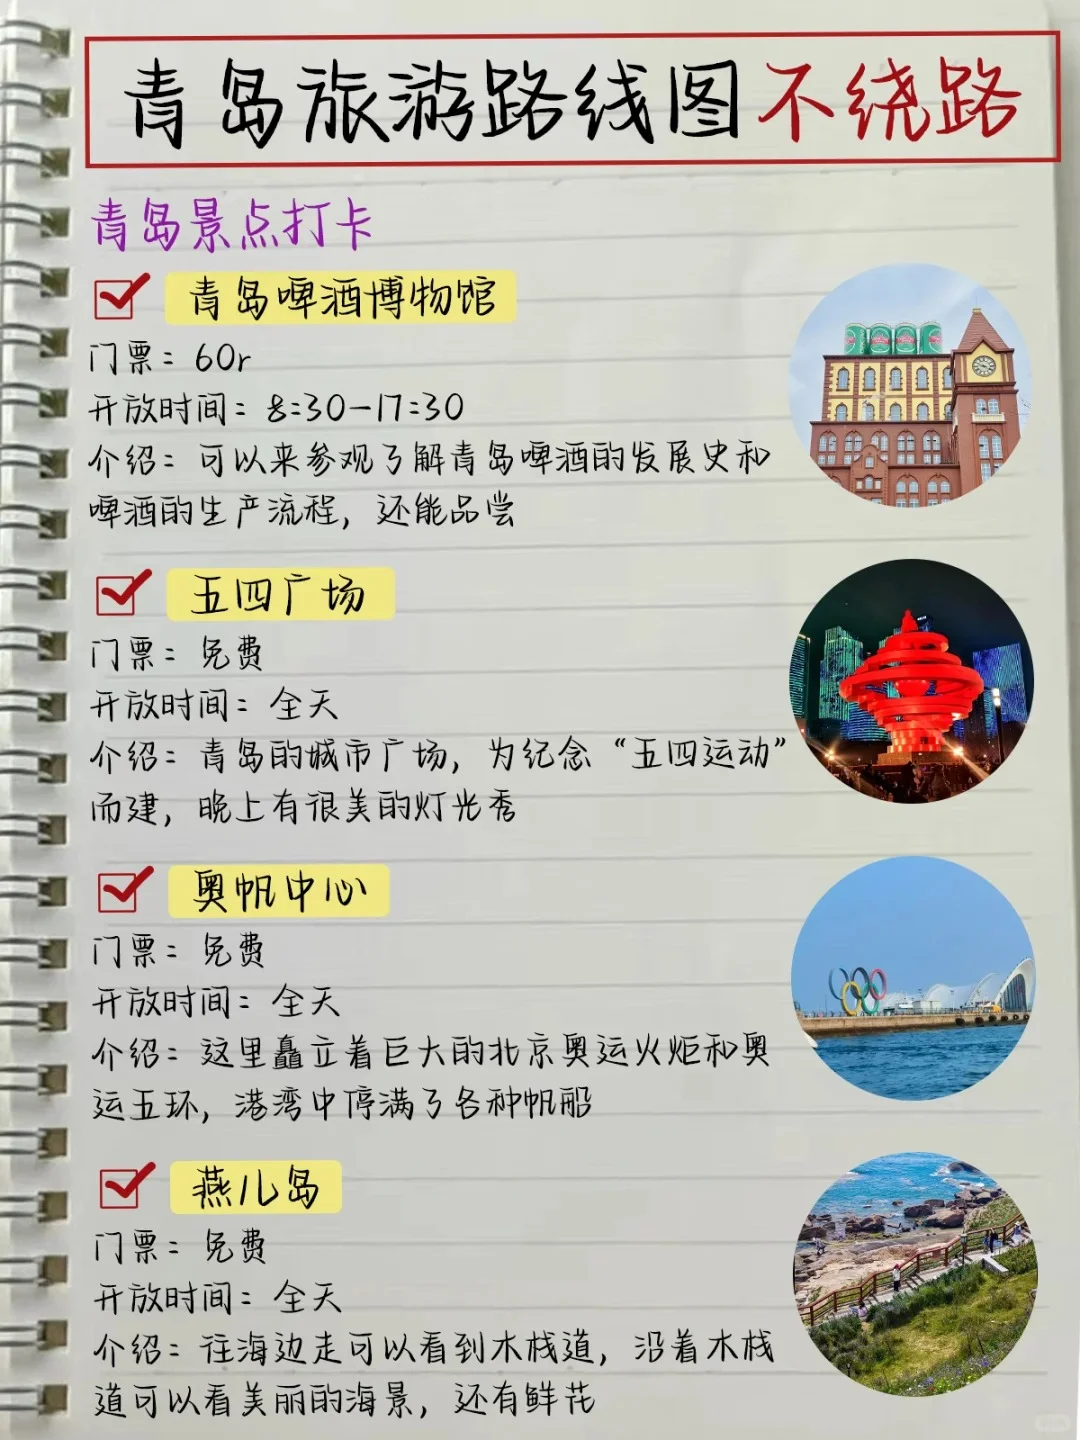 青岛旅游路线图不绕路
青岛景点打卡
青岛啤酒博物馆
门票：60r
开放时间：8:30-17:30
介绍：可以来参观了解青岛啤酒的发展史和
啤酒的生产流程，还能品尝
五四广场
门票：免费
开放时间：全天
介绍：青岛的城市广场，为纪念“五四运动”
而建，晚上有很美的灯光秀
奥帆中心
门票：免费
开放时间：全天
介绍：这里矗立着巨大的北京奥运火炬和奥
运五环，港湾中停满了各种帆船
燕儿岛
门票：免费
开放时间：全天
介绍：往海边走可以看到木栈道，沿着木栈
道可以看美丽的海景，还有鲜花